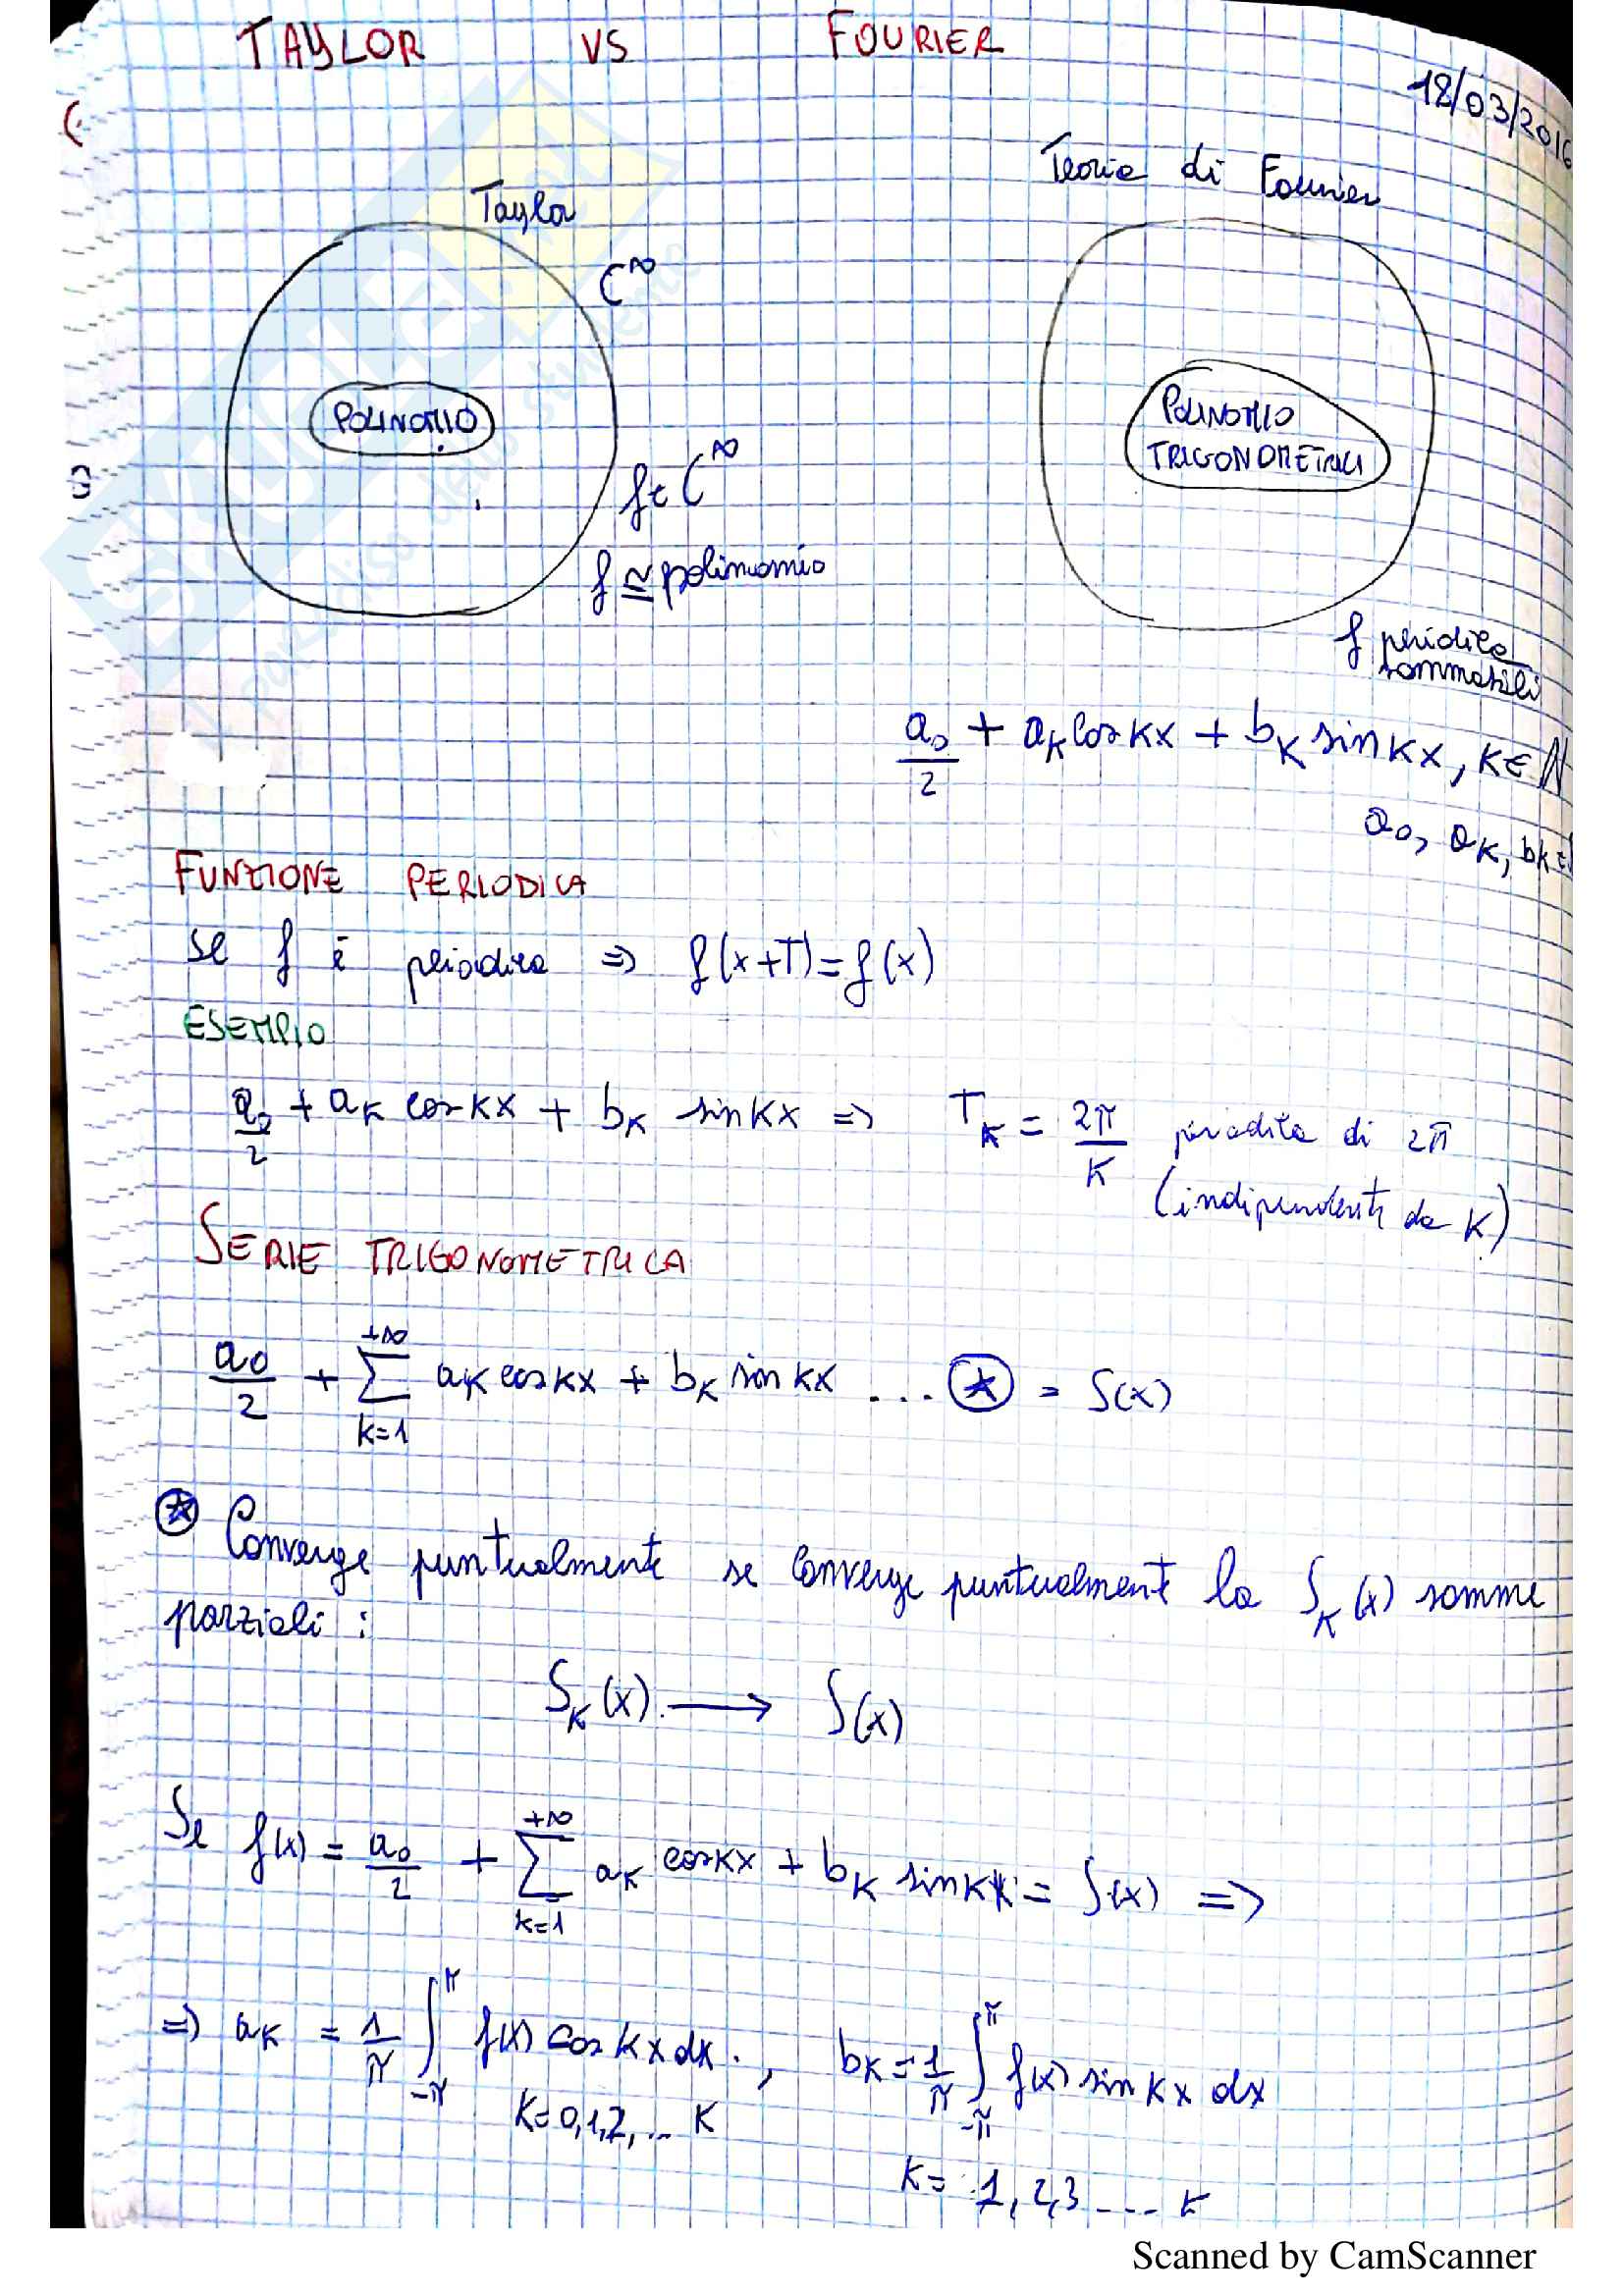 TAYLOR VS FOURIER
18/03/2016
Taylor
Teoria di Fourier
C^∞
POLINOMIO
POLINOMIO
TRIGONOMETRICI
f ∈ C^∞
f ≅ polinomio
f periodica
sommabili
a₀/2 + aₖ cos kx + bₖ sin kx, k ∈ ℕ
a₀, aₖ, bₖ ∈
FUNZIONE PERIODICA
se f è periodica ⇒ f(x+T) = f(x)
ESEMPIO
a₀/2 + aₖ cos kx + bₖ sin kx ⇒ Tₖ = 2π/k periodica di 2π
(indipendente da k)
SERIE TRIGONOMETRICA
a₀/2 + ∑_{k=1}^{+∞} aₖ cos kx + bₖ sin kx .... ⍟ = S(x)
⍟ Converge puntualmente se converge puntualmente la Sₖ(x) somme
parziali :
Sₖ(x) ⟶ S(x)
Se f(x) = a₀/2 + ∑_{k=1}^{+∞} aₖ cos kx + bₖ sin kx = S(x) ⇒
⇒ aₖ = 1/π ∫_{-π}^{π} f(x) cos kx dx. , bₖ = 1/π ∫_{-π}^{π} f(x) sin kx dx
k=0,1,2,... k
k= 1,2,3 .... k
Scanned by CamScanner